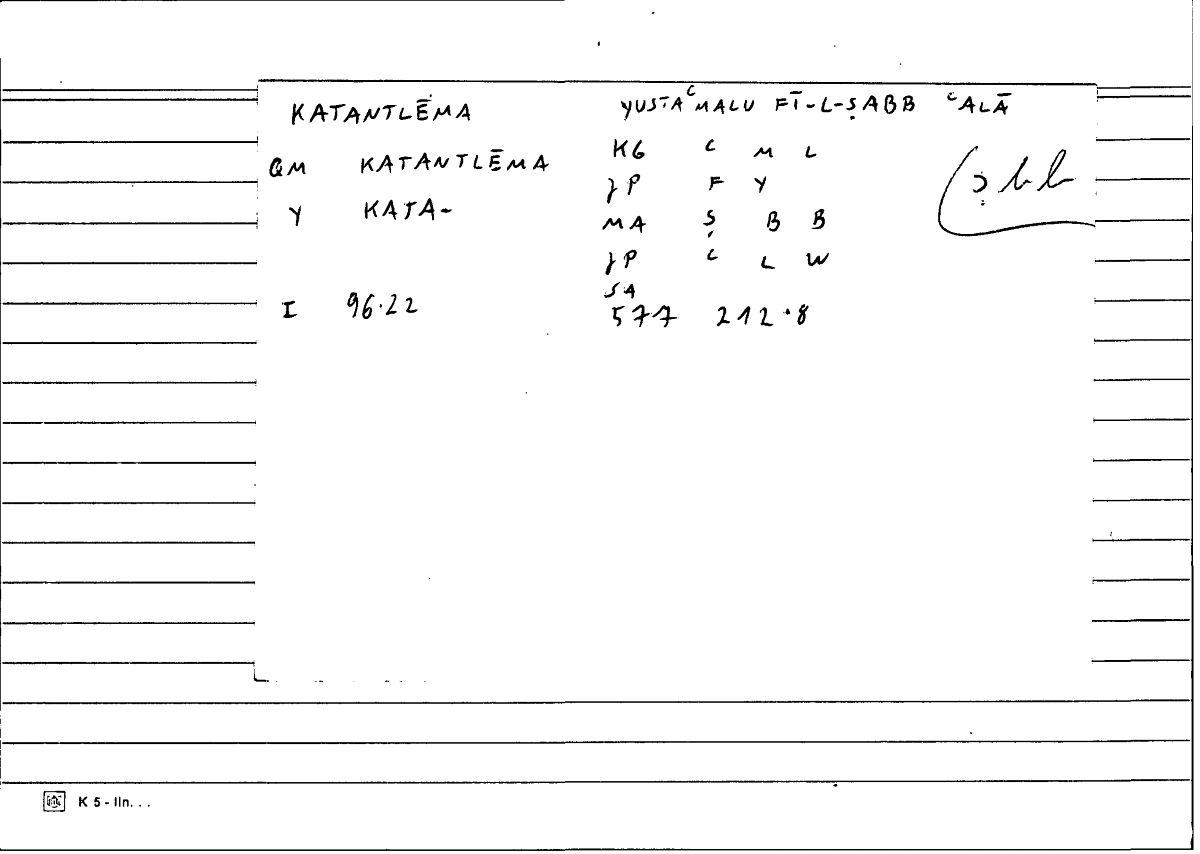 KATANTLĒMA YUSTAʿMALU FĪ-L-ṢABB ʿALĀ
KG ʿ M L
QM KATANTLĒMA
JP F Y
Y KATA-
MA Ṣ B B
JP ʿ L W
SA
I 96.22 577 212.8
K 5 - lln. . .